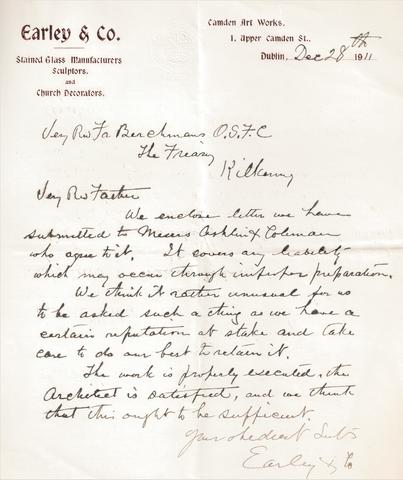 Earley & Co.
Stained Glass Manufacturers
Sculptors.
and
Church Decorators.
Camden Art Works.
1. Upper Camden St.,
Dublin, Dec 28th 1911
Very Rev Fr Berchmans O.S.F.C
The Friary
Kilkenny
Very Rev Father
We enclose letter we have
submitted to Messrs Ashlin & Coleman
who agree to it. It covers any liability
which may occur through improper preparation.
We think it rather unusual for us
to be asked such a thing as we have a
certain reputation at stake and take
care to do our best to retain it.
The work is properly executed, the
Architect is satisfied, and we think
that this ought to be sufficient.
Your obedient Svts
Earley & Co